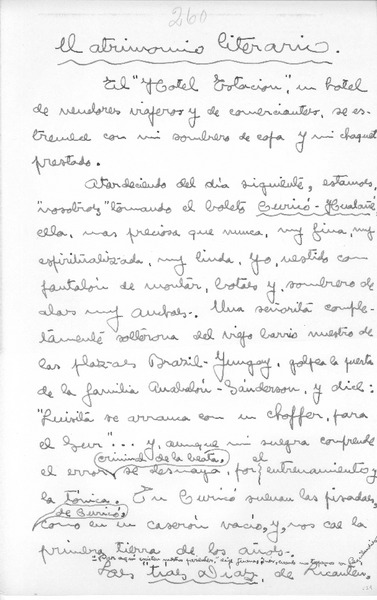 260
Matrimonio literario.
El "Hotel Estación", un hotel
de vendores viajeros y de comerciantes, se es-
tremece con mi sombrero de copa y mi chaqué
prestado.
Atardeciendo del día siguiente, estamos
"nosotros" tomando el boleto Curicó-Hualañé,
ella, mas preciosa que nunca, muy fina, muy
espiritualizada, muy linda. Yo, vestido con
pantalón de montar, botas y sombrero de
alas muy anchas. Una señorita comple-
tamente solterona del viejo barrio nuestro de
las plazas Brasil-Yungay, golpea la puerta
de la familia Anabalón-Sánderson, y dice:
"Luisita se arranca con un choffer, para
el Sur"... y, aunque mi suegra comprende
criminal de la beata,
el error se desmaya, por el entrenamiento y
la tónica. En Curicó suenan las pisadas,
de Curicó,
como en un caserón vacío, y, nos cae la
primera tierra de los años.
Las "trais Diaz", de Licantén,